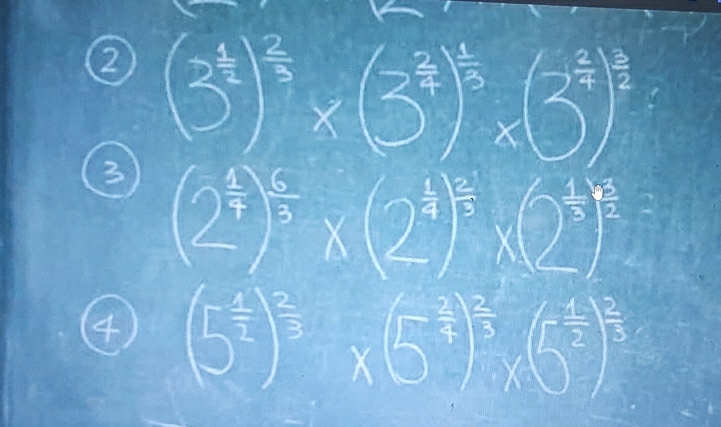 ② (3^{1/2})^{2/3} × (3^{2/4})^{1/3} × (3^{2/4})^{3/2}
③ (2^{1/4})^{6/3} × (2^{1/4})^{2/3} × (2^{1/3})^{3/2}
④ (5^{1/2})^{2/3} × (5^{2/4})^{2/3} × (5^{1/2})^{2/3}